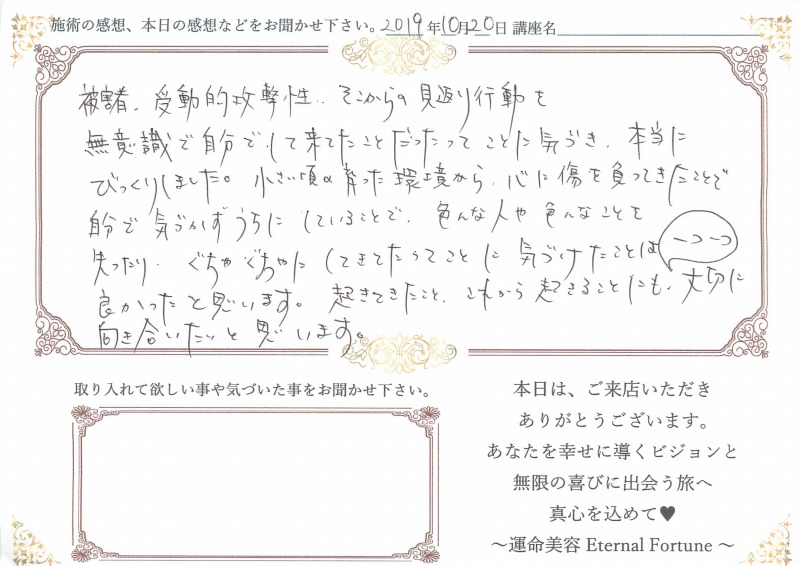 施術の感想、本日の感想などをお聞かせ下さい。2019年10月20日 講座名
被害者、受動的攻撃性、そこからの見返り行動を
無意識で自分でして来てたことだったってことに気づき、本当に
びっくりしました。小さい頃の育った環境から、心に傷を負ってきたことで
自分で気づかずうちにしていることで、色んな人や色んなことを
失ったり、ぐちゃぐちゃにしてきてたってことに気づけたことは
良かったと思います。起きてきたこと、これから起きることにも、一つ一つ大切に
向き合いたいと思います。
取り入れて欲しい事や気づいた事をお聞かせ下さい。
本日は、ご来店いただき
ありがとうございます。
あなたを幸せに導くビジョンと
無限の喜びに出会う旅へ
真心を込めて♥
〜運命美容 Eternal Fortune 〜